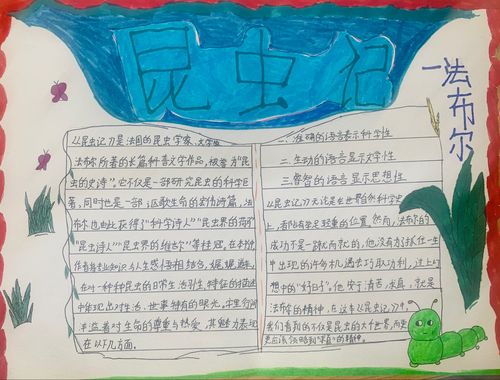 昆虫记
一法布尔
《昆虫记》是法国的昆虫学家、文学家
法布尔所著的长篇科普文学作品,被誉为"昆
虫的史诗"。它不仅是一部研究昆虫的科学巨
著,同时也是一部讴歌生命的宏伟诗篇,法
布尔也由此获得了"科学诗人""昆虫界的荷马"
"昆虫诗人""昆虫界的维吉尔"等桂冠,在本书中
作者将专业知识与人生感悟相结合,娓娓道来,
在对一种种昆虫的日常生活习性、特征的描述
中体现出对生活、世事特有的眼光,字里行间
中洋溢着对生命的尊重与热爱,其魅力表现
在以下几方面。
一.准确的语言表示科学性
二.生动的语言显示文学性
三.睿智的语言显示思想性
《昆虫记》无论是在世界的科学史
上,都占有举足轻重的位置,然而,法布尔的
成功不是一蹴而就的,他没有抓住一生
中出现的许多机遇去巧取功利,过上
想中的"好日子"。他安于清苦,求真,就是
法布尔的精神,在这本《昆虫记》中,
我们看到的不仅是昆虫的大千世界,而
更应该领略到"求真"的精神。